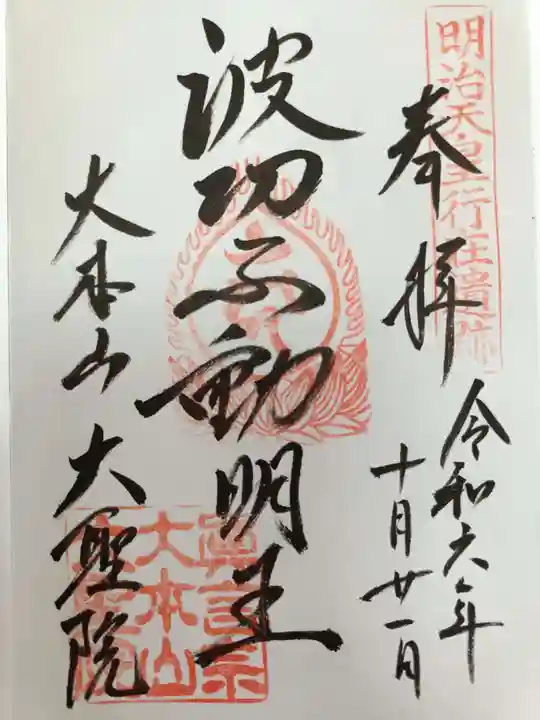 明治天皇行在遺跡
奉拝
令和六年
十月廿一日
波切不動明王
大本山大聖院
真言宗
大本山